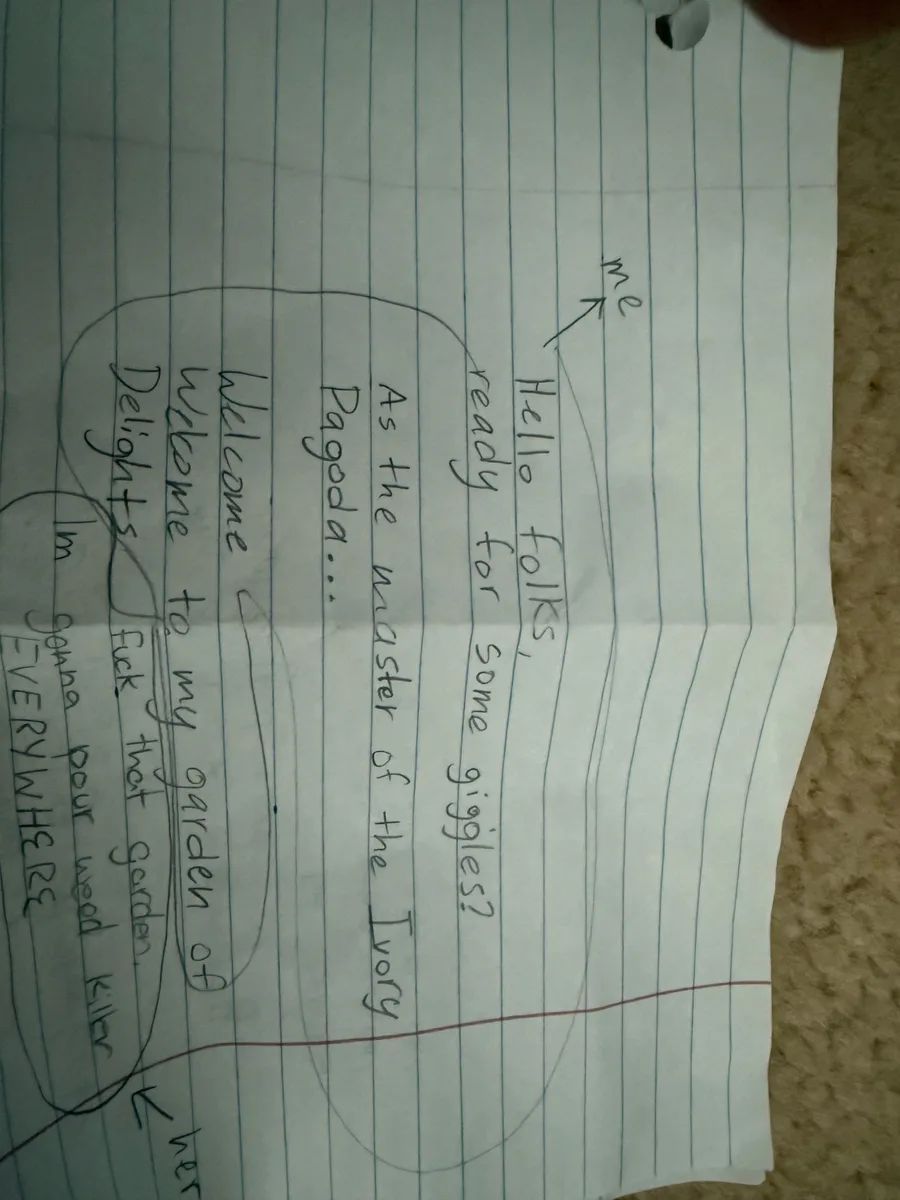 me
Hello folks,
ready for some giggles?
As the master of the Ivory
Pagoda...
Welcome
Welcome to my garden of
Delights
fuck that garden.
Im gonna pour weed killer
EVERYWHERE
her